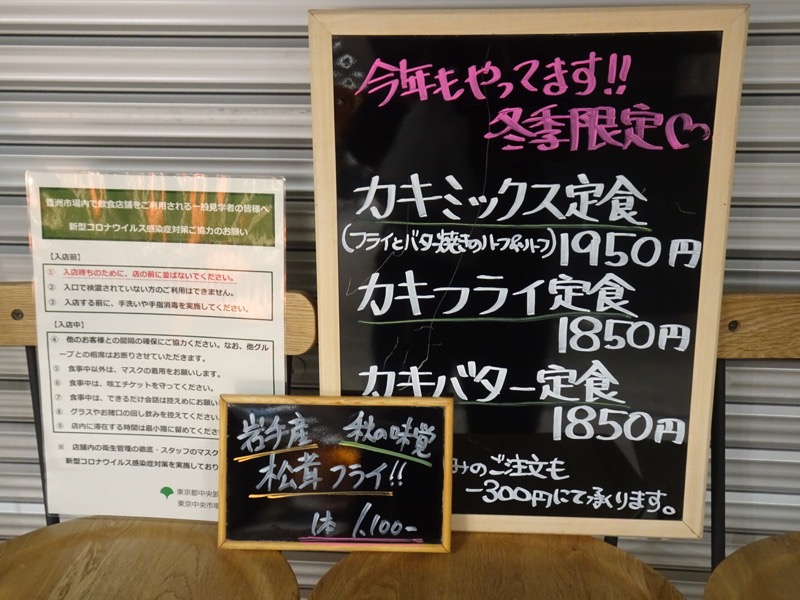 今年もやってます!!
冬季限定♡
カキミックス定食
(フライとバター焼きのハーフ&ハーフ) 1950円
カキフライ定食
1850円
カキバター定食
1850円
みのご注文も
-300円にて承ります。
岩手産 秋の味覚
松茸フライ!!
1本 1,100-
豊洲市場内で飲食店舗をご利用される一般見学者の皆様へ
新型コロナウイルス感染症対策ご協力のお願い
【入店前】
① 入店待ちのために、店の前に並ばないでください。
② 入口で検温されていない方のご利用はできません。
③ 入店する前に、手洗いや手指消毒を実施してください。
【入店中】
④ 他のお客様との間隔の確保にご協力ください。なお、他グル
ープとの相席はお断りさせていただきます。
⑤ 食事中以外は、マスクの着用をお願いします。
⑥ 食事中は、咳エチケットを守ってください。
⑦ 食事中は、できるだけ会話は控えめにお願い
⑧ グラスやお猪口の回し飲みを控えてくだ
⑨ 店内に滞在する時間は最小限に留めてくだ
※ 店舗内の衛生管理の徹底・スタッフのマスク
新型コロナウイルス感染症対策を実施してお
東京都中央卸
東京中央市場